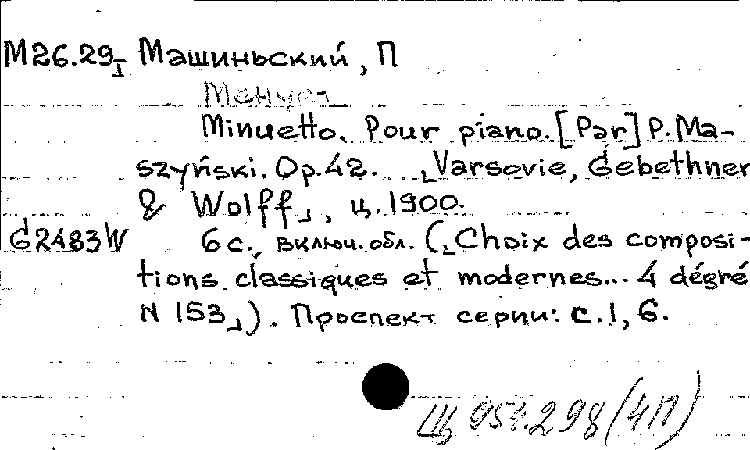 М26.29I Машиньский, П
Менуэт
Minuetto. Pour piano. [Par] P. Ma-
szyński. Op. 42. ⌞Varsovie, Gebethner
& Wolff⌟, ц. 1900.
G2483W 6 с., включ. обл. (⌞Choix des composi-
tions classiques et modernes... 4 dégré
N 153⌟). Проспект серии: с. 1, 6.
Щ 951.298 (4П)